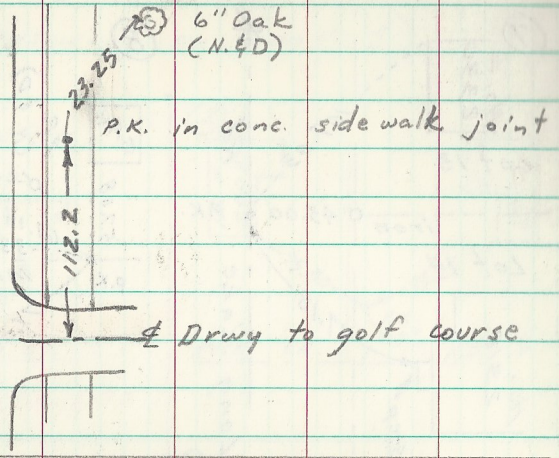 6" Oak
(N.&D)
23.25
P.K. in conc. sidewalk joint
112.2
℄ Drwy to golf course